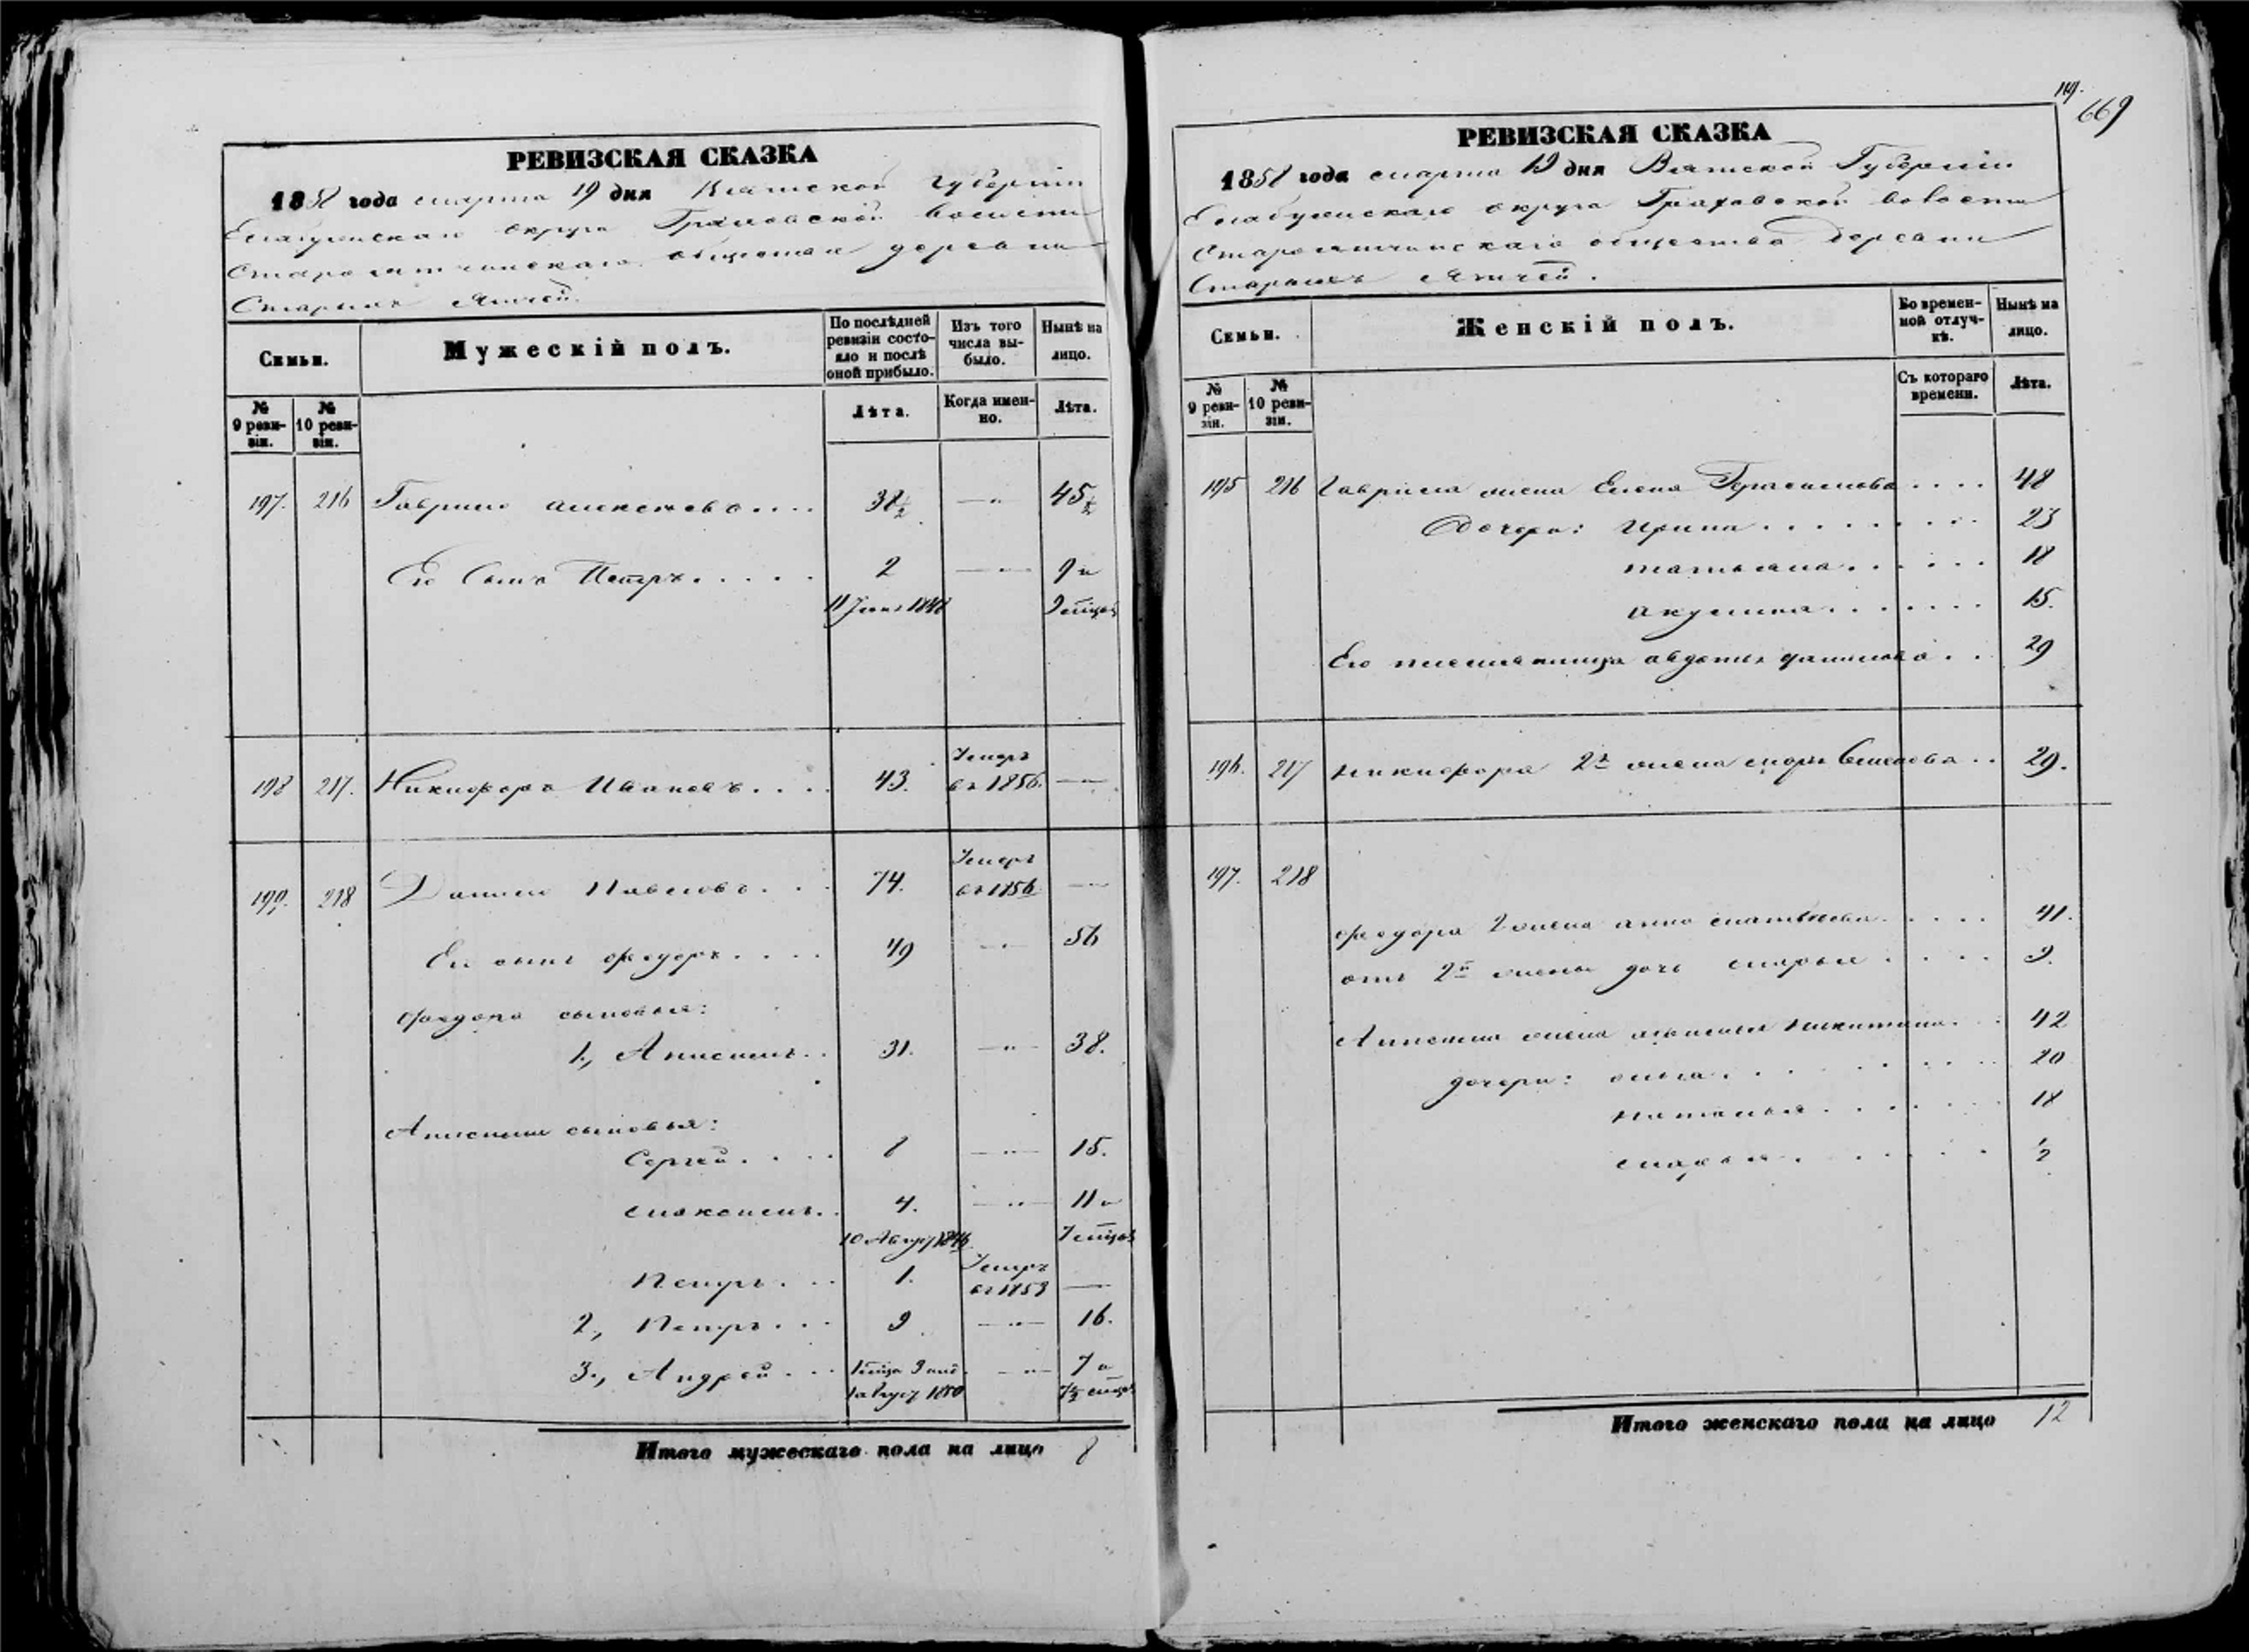 РЕВИЗСКАЯ СКАЗКА
1858 года марта 19 дня Вятской Губернiи
Елабужскаго округа Граховской волости
Староятчинскаго общества деревни
Старыхъ Ятчей.
Семьи.
Мужескiй полъ.
По послѣдней ревизiи состояло и послѣ оной прибыло.
Изъ того числа выбыло.
Нынѣ на лицо.
№ 9 ревизiи.
№ 10 ревизiи.
Лѣта.
Когда именно.
Лѣта.
197. 216 Гаврило Алексѣевъ.... 38½ —"— 45½
Его Сынъ Петръ..... 2 —"— 9 и
11 1848 9 мѣцов
198 217. Никифоръ Ивановъ.... 43. Умеръ въ 1856. —"—
199. 218 Данило Павловъ... 74. Умеръ въ 1856 —"—
Его сынъ Федоръ.... 49 —"— 56
Федора сыновья:
1., Анисимъ.. 31. —"— 38.
Анисима сыновья:
Сергей.... 8 —"— 15.
Максимъ.. 4. —"— 11 и
10 Август 1846 7 мѣцов
Петръ... 1. Умеръ въ 1853 —
2., Петръ... 9 —"— 16.
3., Андрей... —"— 7 и
1 август 1850 7½ мѣцов
Итого мужескаго пола на лицо 8
119.
669
РЕВИЗСКАЯ СКАЗКА
1858 года марта 19 дня Вятской Губернiи
Елабужскаго округа Граховской волости
Староятчинскаго общества деревни
Старыхъ Ятчей.
Семьи.
Женскiй полъ.
Во временной отлучкѣ.
Нынѣ на лицо.
№ 9 ревизiи.
№ 10 ревизiи.
Съ котораго времени.
Лѣта.
195 216 Гаврила жена Елена Герасимова.... 48
Дочери: Ирина......... 23
Татьяна...... 18
Акулина....... 15.
Его племянница Авдотья Данилова.. 29
196. 217 Никифора 2я жена Марья Семенова.. 29.
197. 218
Федора 2 жена Анна Матвѣева..... 41.
отъ 2й жены дочь Марья.... 9.
Анисима жена Никитина... 42
дочери: Ольга....... 20
Наталья....... 18
Марья...... 2
Итого женскаго пола на лицо 12